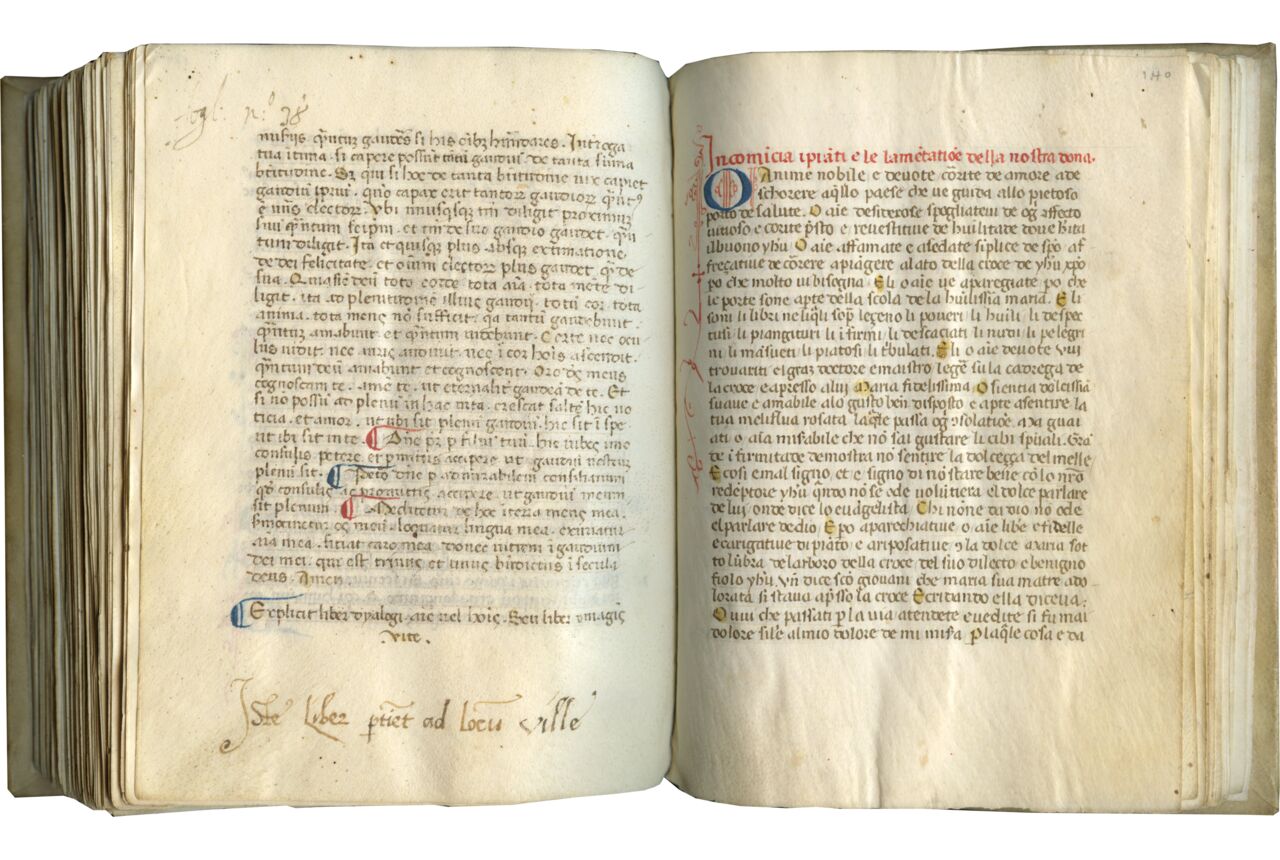 fogl: n.º 38
nusiis q̄ntuꝫ gauđes si his oībꝫ hr̄undares. Introga
tua itima. si capere possint tātū gaudiū de tanta sūma
btitudine. Sꝫ qui si hoc de tanta btitudine vix capiet
gaudiū ip̄rui. quō capax erit tantoꝝ gaudioꝝ
Ubi unusqsqꝫ diligit proximū
suū q̄ntum seip̄m. et
tum diligit. Ita et quisqꝫ plus absqꝫ extimatione
de dei felicitate. et oīum electoꝝ plus gaudet q̄ de
sua. Qm̄ sic deū toto corde tota aīa. tota mēte di
ligit. ita ad plenitudinē illius gaudii. totū cor tota
anima. tota mens nō sufficit. tantū gaudebunt
q̄ntum amabunt. et q̄ntum videbunt. Certe nec ocu
lus vidit. nec auris audivit. nec i cor hoīs ascendit.
q̄ntum deū amabunt et cognoscent. Oro ds̄ meus
cognoscam te. ame te. ut eternalit gaudeā de te. Et
si no possū ad plenū in hac vita. crescat saltē hic no
ticia. et amor. ut ubi sit plenū gaudiū. hic sit i spe
ut ibi sit in re. ¶ Dn̄e pr̄ p filiū tuū. hic iubes īmo
consulis petere. et p̄mittis accipere. ut gaudiū nostrū
plenū sit. ¶ Peto dn̄e p admirabilem consiliarium
qđ consulis ac promittis accipere. ut gaudiū meum
sit plenum. ¶ Meditetur de hoc iterū mens mea.
loquatur lingua mea. esuriat
aīa mea. sitiat caro mea. donec intrem i gaudium
dei mei. qui est trinus et unus bn̄dictus i secula
deus. Amen.
¶ Explicit liber dyalogi. aīe vel hoīs. Seu liber ymagīs
vite.
Iste Liber ptinet ad locū ville
140
Incomicia ipiāti e le lamētatiōe della nostra dona.
O Anime nobile e devote cōrite de amore a de
schorere aq̄llo paese che ve guida allo pietoso
porto de salute. O aīe desiderose spogliatevi de og affecto
vitioso e corite p̄sto e revestitive de huīlitade dove hīta
ilbuono yhū. O aīe affamate e asedate siplice de spō af
freçative de cōrere apiāgere alato della croce de yhū xp̄o
po che molto vi bisogna. Eli o aīe ve aparegiate po che
le porte sone apte della scola de la huīlissia maria. Eli
soni li libri neliq̄li sop̄ legeno li poveri li huīli li despec
tusi li piangituri li ifirmi li descaciati li nudi li pelegri
ni li māsueti li piatosi li tbulati. Eli o aīe devote vui
trovariti el graz doctore e maistro legē su la cadrega de
la croce e apresso a lui Maria fidelissima. O sientia dolcissia
suave e amabile alo gusto ben disposto e apte asentire la
tua meliflua rosata laq̄le passa og solatioe. axa guai
ati o aīa misabile che nō sai gustare li cibi spūali. Grā
de i firmitade demostra nō sentire la dolceçça del melle
E cosi e mal signo. et e signo di nō stare bene cō lo nr̄o
redēptore yhū q̄ndo nō se ode volūtiera el dolce parlare
de lui onde dice lo evāgelista. Chi none da dio no ode
el parlare de dio. E po aparechiative o aīe libe e fidelle
e carigative di piāto e a riposative 9 la dolce axaria sot
to lūbra de larboro della croce del suo dilecto e benigno
fiolo yhū. vn̄ dice scō giovani che maria sua matre ado
lorata si stava ap̄sso la croce E cridando ella diceva:
O vui che passati p la via atendete e vedite si fu mai
dolore sile al mio dolore de mi misa. P laq̄le cosa e da